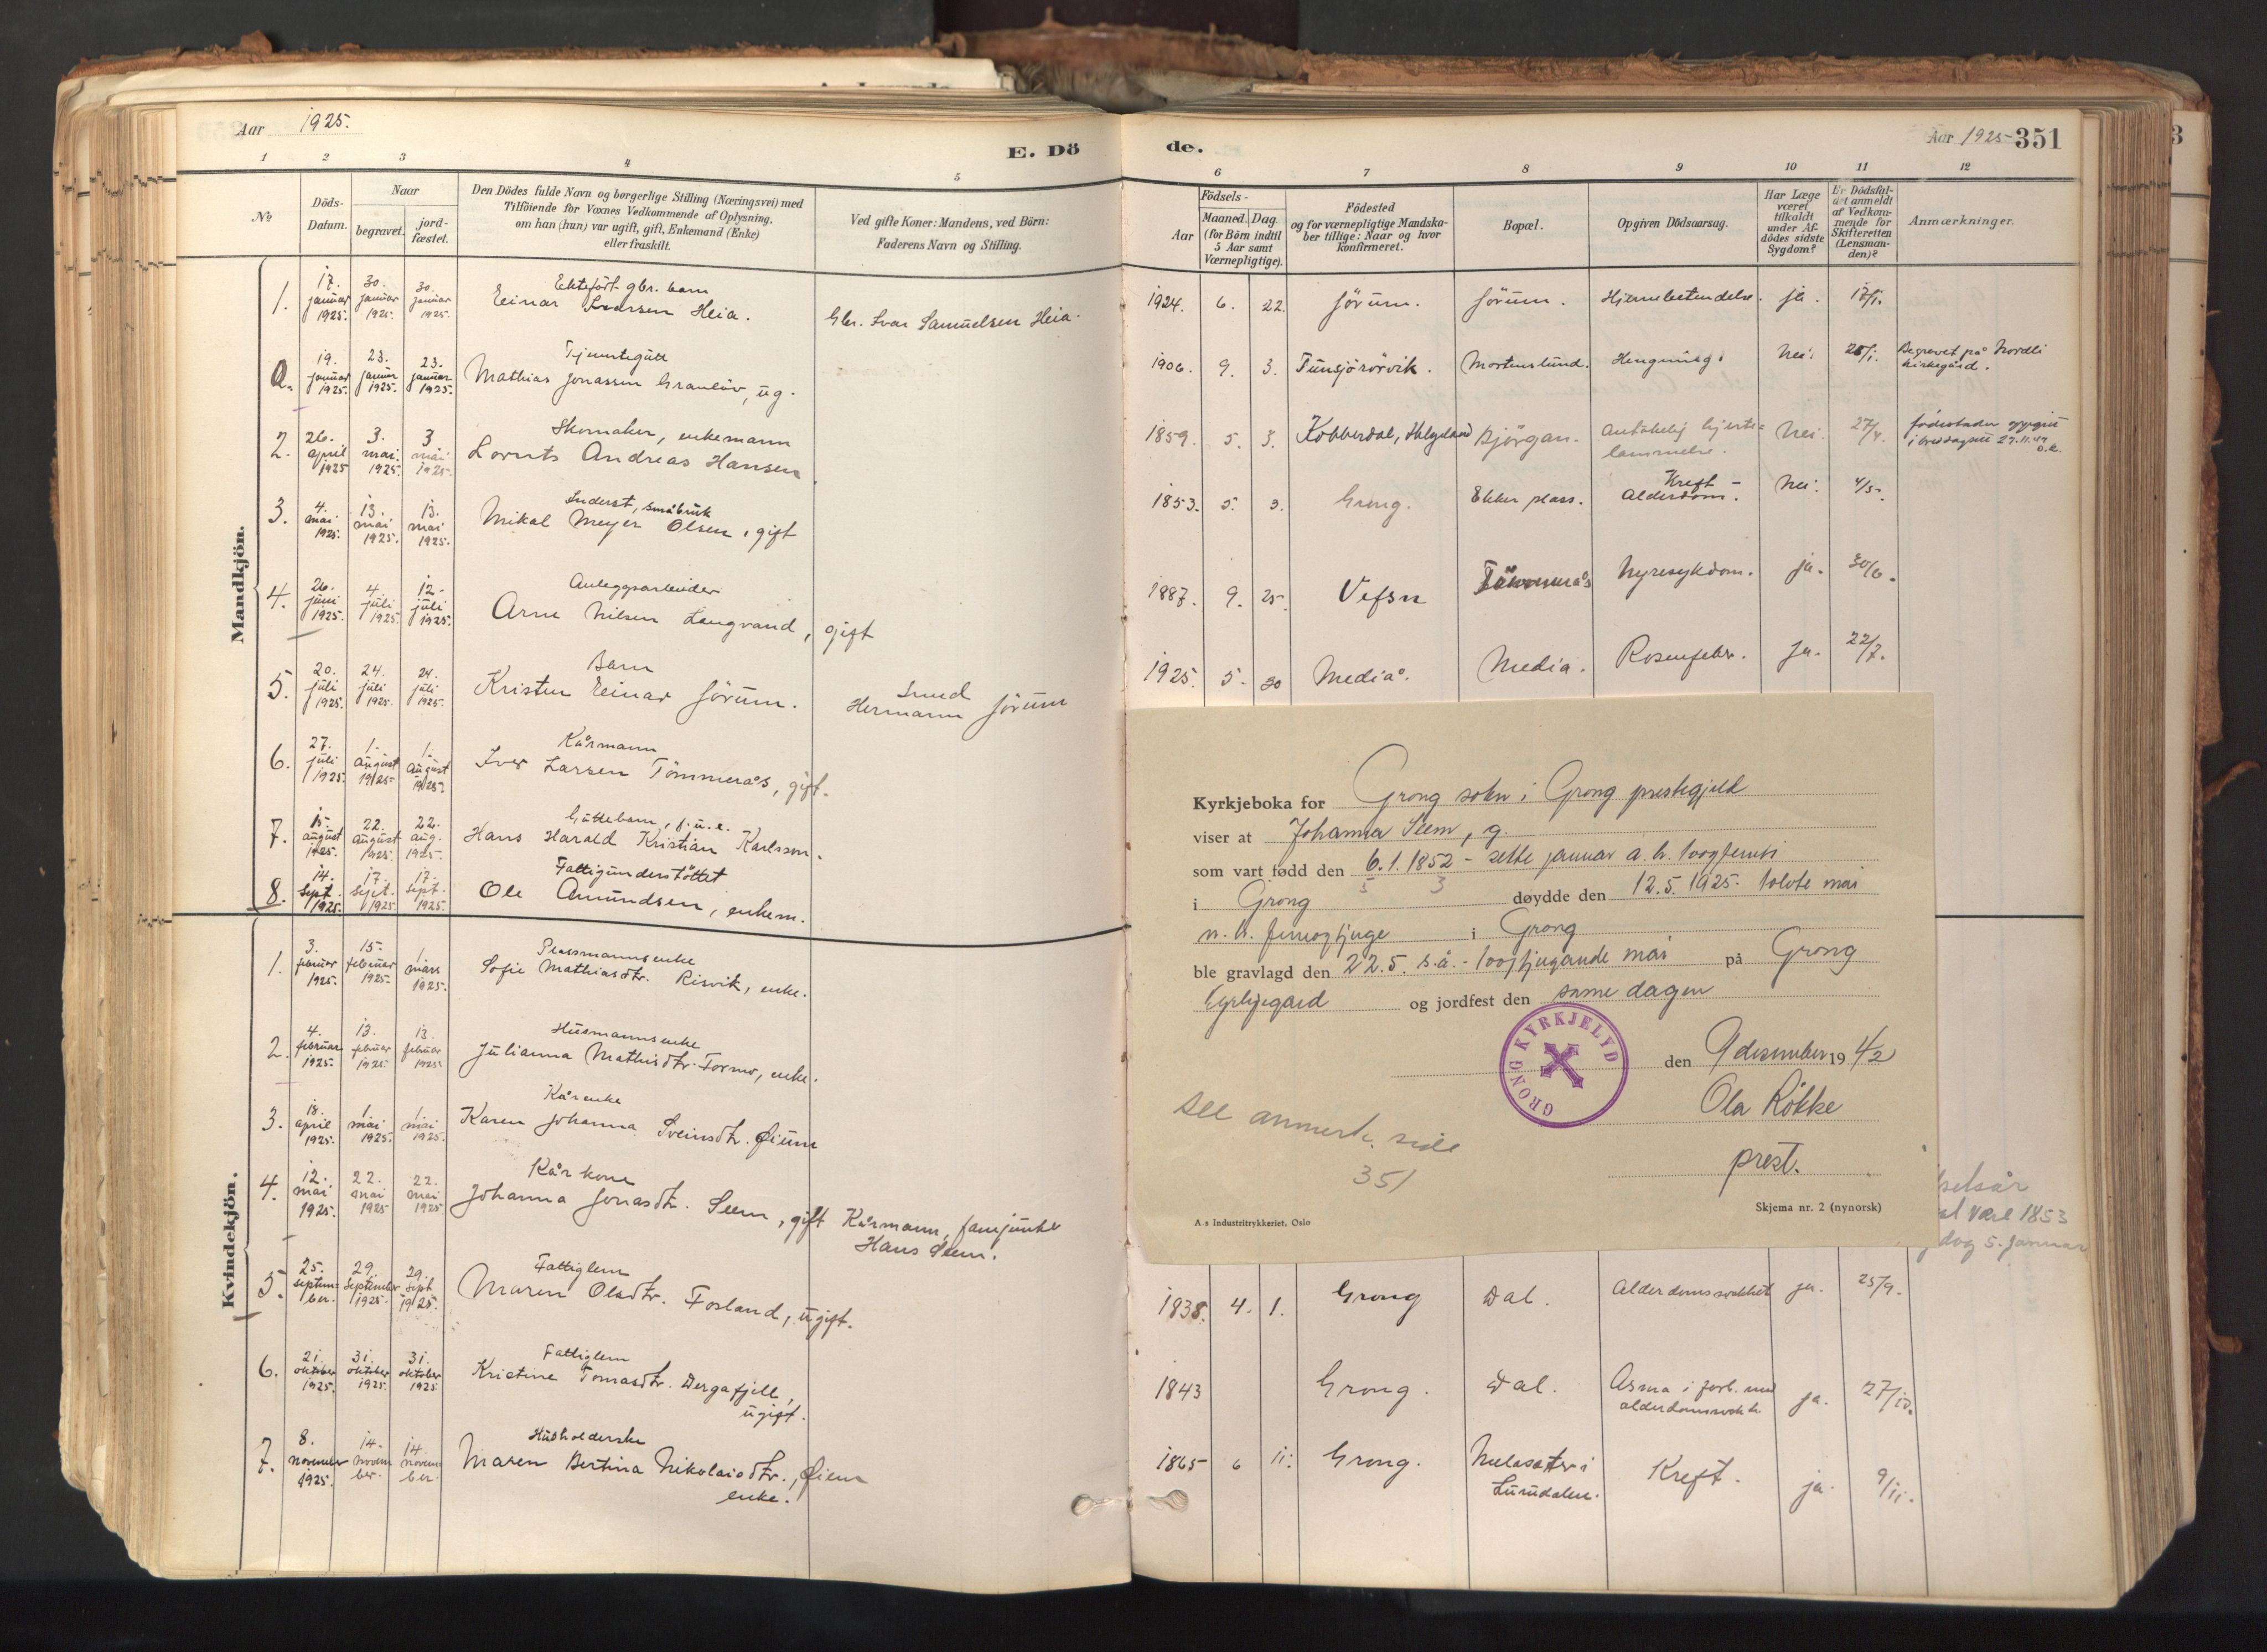 Aar 1925.
E. Dö
1 2 3 4 5
No
Döds-
Datum.
Naar
begravet.
jord-
fæstet.
Den Dödes fulde Navn og borgerlige Stilling (Næringsvei) med
Tilföiende for Voxnes Vedkommende af Oplysning,
om han (hun) var ugift, gift, Enkemand (Enke)
eller fraskilt.
Ved gifte Koner: Mandens, ved Börn:
Faderens Navn og Stilling.
Mandkjön.
1. 17. januar 1925. 30. januar 1925. 30. januar 1925.
Ektefødt gbr. barn
Einar Ivarsen Heia.
Gbr. Ivar Samuelsen Heia.
a. 19. januar 1925. 23. januar 1925. 23. januar 1925.
Tjenestegutt
Mathias Jonassen, ug.
2. 26. april 1925 3. mai 1925. 3 mai 1925.
Skomaker, enkemann
Lornts Andreas Hansen
3. 4. mai 1925. 13. mai 1925. 13. mai 1925.
Inderst, småbruk
Mikal Meyer Olsen, gift
4. 26. juni 1925. 4. juli 1925. 12. juli 1925.
Anleggsarbeider
Arne Nilsen Langvand, gift
5. 20. juli 1925. 24. juli 1925. 24. juli 1925.
Barn
Kristen Einar Jörum.
Smed
Hermann Jörum
6. 27. juli 1925. 1. august 1925. 1. august 1925.
Kårmann
Iver Larsen Tömmerås, gift.
7. 15. august 1925. 22. august 1925. 22. aug. 1925.
Guttebarn, f. u. e.
Hans Harald Kristian Karlsson.
8. 14. sept. 1925. 17. sept. 1925. 17. sept. 1925.
Fattigunderstöttet
Ole Amundsen, enkem.
Kvindekjön.
1. 3. februar 1925. 15. februar 1925. 1 mars 1925.
Plassmannsenke
Sofie Mathiasdtr. Risvik, enke.
2. 4. februar 1925. 13. februar 1925. 13. februar 1925
Husmannsenke
Julianna Mathisdtr. Formo, enke.
3. 18. april 1925. 1. mai 1925. 1. mai 1925.
Kårenke
Karen Johanna Sveinsdtr. Øium
4. 12. mai 1925. 22. mai 1925 22. mai 1925
Kårkone
Johanna Jonasdtr. Seem, gift
Kårmann, fanejunker
Hans Seem.
5. 25. september. 29. September 1925. 29. sept 1925.
Fattiglem
Maren Olsdtr. Fosland, ugift.
6. 21. oktober 1925. 31. oktober 1925. 31. oktober 1925
Fattiglem
Kristine Tomasdtr. Dergafjell,
ugift.
7. 8. november 1925. 14. november. 14. november.
Husholderske
Maren Bertina Nikolaisdtr., Øien
enke.
de.
Aar 1925 351
6 7 8 9 10 11 12
Födsels-
Aar
Maaned. Dag.
(for Börn indtil
5 Aar samt
Værnepligtige).
Födested
og for værnepligtige Mandska-
ber tillige: Naar og hvor
konfirmeret.
Bopæl.
Opgiven Dödsaarsag.
Har Læge
været
tilkaldt
under Af-
dödes sidste
Sygdom?
Er Dödsfal-
det anmeldt
af Vedkom-
mende for
Skifteretten
(Lensman-
den)?
Anmærkninger.
1924. 6. 22. Jörum. Jörum. Hjernebetendelse. ja. 17/1.
1906. 9. 3. Tunsjörörvik. Mortenslund. Hengning. Nei. 25/1. Begravet på Nordli
kirkegård.
1859. 5. 3. Kobberdal, Helgeland Bjørgan. Antakelig hjerte-
lammelse. Nei. 27/4. födestaden
27.11.
1853. 5. 3. Grong. Ekker plass. Kreft –
Alderdom. Nei. 4/5.
1887. 9. 25. Vefsn Tömmerås Nyresykdom. ja. 30/6.
1925. 5. 30 Mediå. Media. Rosenfeber. Ja. 22/7.
Kyrkjeboka for Grong sokn i Grong prestegjeld
viser at Johanna Seem, g.
som vart fødd den 6.1.1852 – sette januar a. h. toogfemti
5 3
i Grong døydde den 12.5.1925. tolvte mai
n. h. femogtjuge i Grong
ble gravlagd den 22.5. s.å. – toogtjugande mai på Grong
kyrkjegard og jordfest den same dagen
GRONG KYRKJELYD
den 9 desember 1942
Ola Røkke
prest.
see anmerk. side
351
Skjema nr. 2 (nynorsk)
A.s Industritrykkeriet, Oslo
selsår
al være 1853
dag 5. Januar
1838. 4. 1. Grong Dal. Alderdomssvakhet ja. 25/9.
1843 Grong. Dal. Asma i forb. med
alderdomssvakh. ja. 27/10.
1865 6 11. Grong. Nelasæter i
Luredalen. Kreft. ja. 9/11.